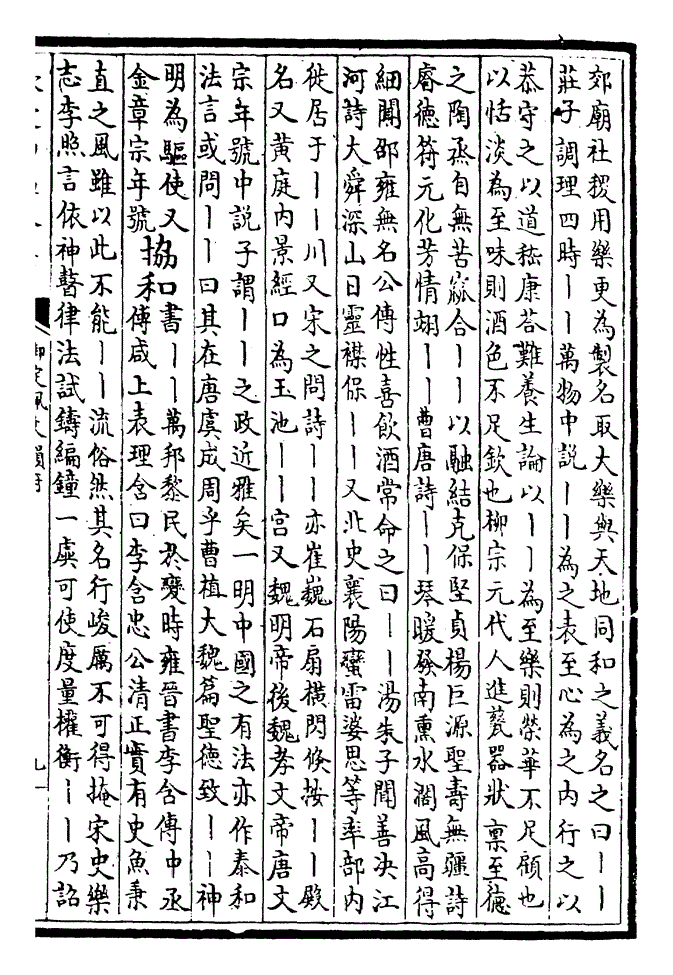 郊廟社稷用樂更為製名取大樂與天地同和之義名之曰丨丨
莊子調理四時丨丨萬物中説丨丨為之表至心為之内行之以
恭守之以道嵇康荅難養生論以丨丨為至樂則榮華不足顧也
以恬淡為至味則酒色不足欽也柳宗元代人進甆器狀禀至德
之陶烝自無苦窳合丨丨以融結克保堅貞楊巨源聖壽無疆詩
睿德符元化芳情翊丨丨曹唐詩丨丨琴暖發南熏水濶風高得
細聞邵雍無名公傳性喜飲酒常命之曰丨丨湯朱子聞善决江
河詩大舜深山日靈襟保丨丨又北史襄陽蠻雷婆思等率部内
徙居于丨丨川又宋之問詩丨丨亦崔巍石扇横閃倏按丨丨殿
名又黄庭内景經口為玉池丨丨宫又魏明帝後魏孝文帝唐文
宗年號中説子謂丨丨之政近雅矣一明中國之有法亦作泰和
法言或問丨丨曰其在唐虞成周乎曹植大魏篇聖德致丨丨神
明為驅使又
金章宗年號
協和
書丨丨萬邦黎民於變時雍晉書李含傳中丞
傅咸上表理含曰李含忠公清正實有史魚秉
直之風雖以此不能丨丨流俗然其名行峻厲不可得掩宋史樂
志李照言依神瞽律法試鑄編鐘一虡可使度量權衡丨丨乃詔